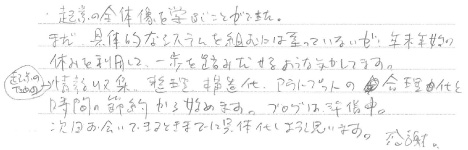 ・起業の全体像を学ぶことができた。
まだ、具体的なシステムを組むには至っていないが、年末年始の
休みを利用して、一歩を踏みだせるような気がします。
起業のための 情報収集、整理、構造化、アウトプットの合理化と
時間の節約から始めます。ブログは準備中。
次回お会いできるときまでに具体化しようと思います。感謝。